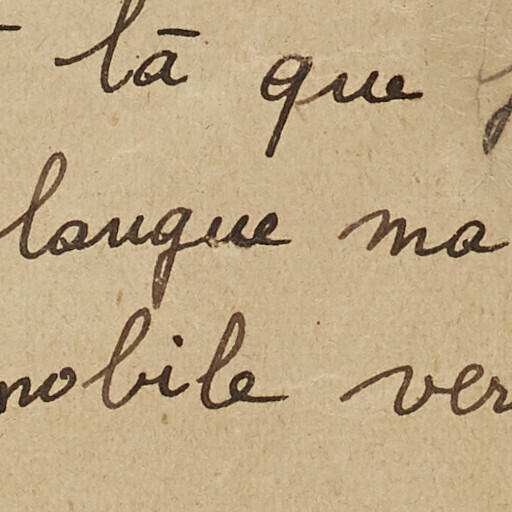 lā que
langue ma
mobile ver